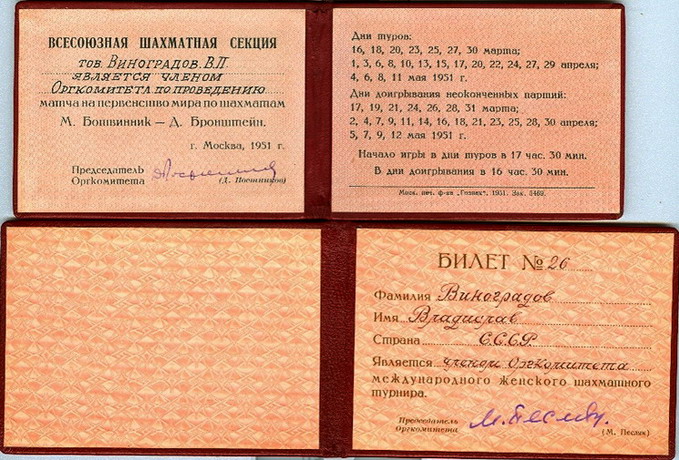 ВСЕСОЮЗНАЯ ШАХМАТНАЯ СЕКЦИЯ
тов. Виноградов. В.П.
является членом
Оргкомитета по проведению
матча на первенство мира по шахматам
М. Ботвинник — Д. Бронштейн.
г. Москва, 1951 г.
Председатель
Оргкомитета
(Д. Постников)
Дни туров:
16, 18, 20, 23, 25, 27, 30 марта;
1, 3, 6, 8, 10, 13, 15, 17, 20, 22, 24, 27, 29 апреля;
4, 6, 8, 11 мая 1951 г.
Дни доигрывания неоконченных партий:
17, 19, 21, 24, 26, 28, 31 марта;
2, 4, 7, 9, 11, 14, 16, 18, 21, 23, 25, 28, 30 апреля;
5, 7, 9, 12 мая 1951 г.
Начало игры в дни туров в 17 час. 30 мин.
В дни доигрывания в 16 час. 30 мин.
Моск. печ. ф-ка „Гознак“. 1951. Зак. 5469.
БИЛЕТ № 26
Фамилия Виноградов
Имя Владислав
Страна С.С.С.Р.
Является членом Оргкомитета
международного женского шахматного
турнира.
Председатель
Оргкомитета
(М. Песляк)